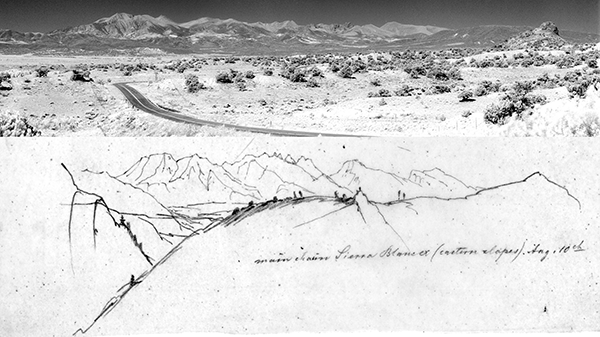 main chain Sierra Blanca (eastern slopes). Aug. 10th